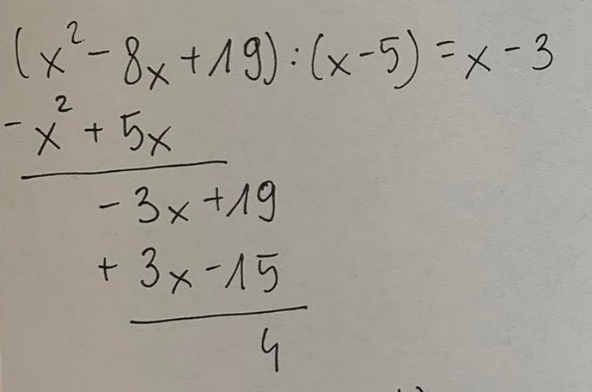 (x² - 8x + 19) : (x - 5) = x - 3
- x² + 5x
- 3x + 19
+ 3x - 15
4